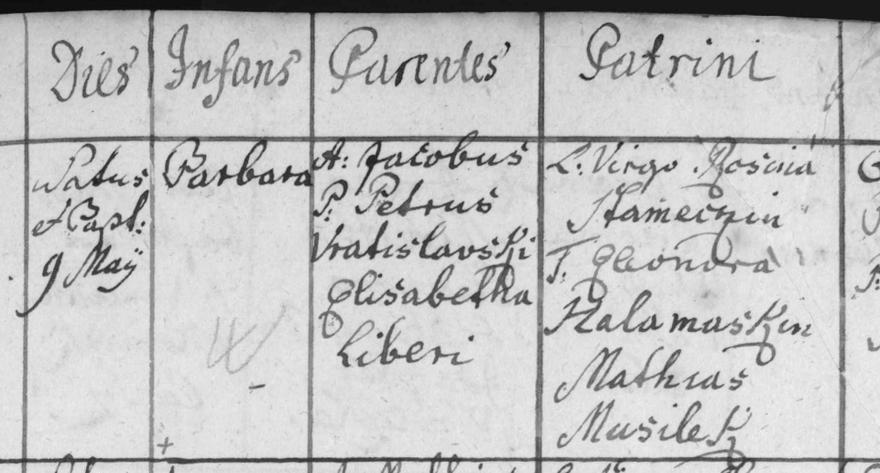 Dies Infans Parentes Patrini
Natus
et Bapt:
9 Maÿ
Barbara
A: Jacobus
P: Petrus
Vratislavski
Elisabetha
Liberi
L: Virgo Rosina
Stameczin
T: Eleonora
Halamaskin
Mathias
Musilek